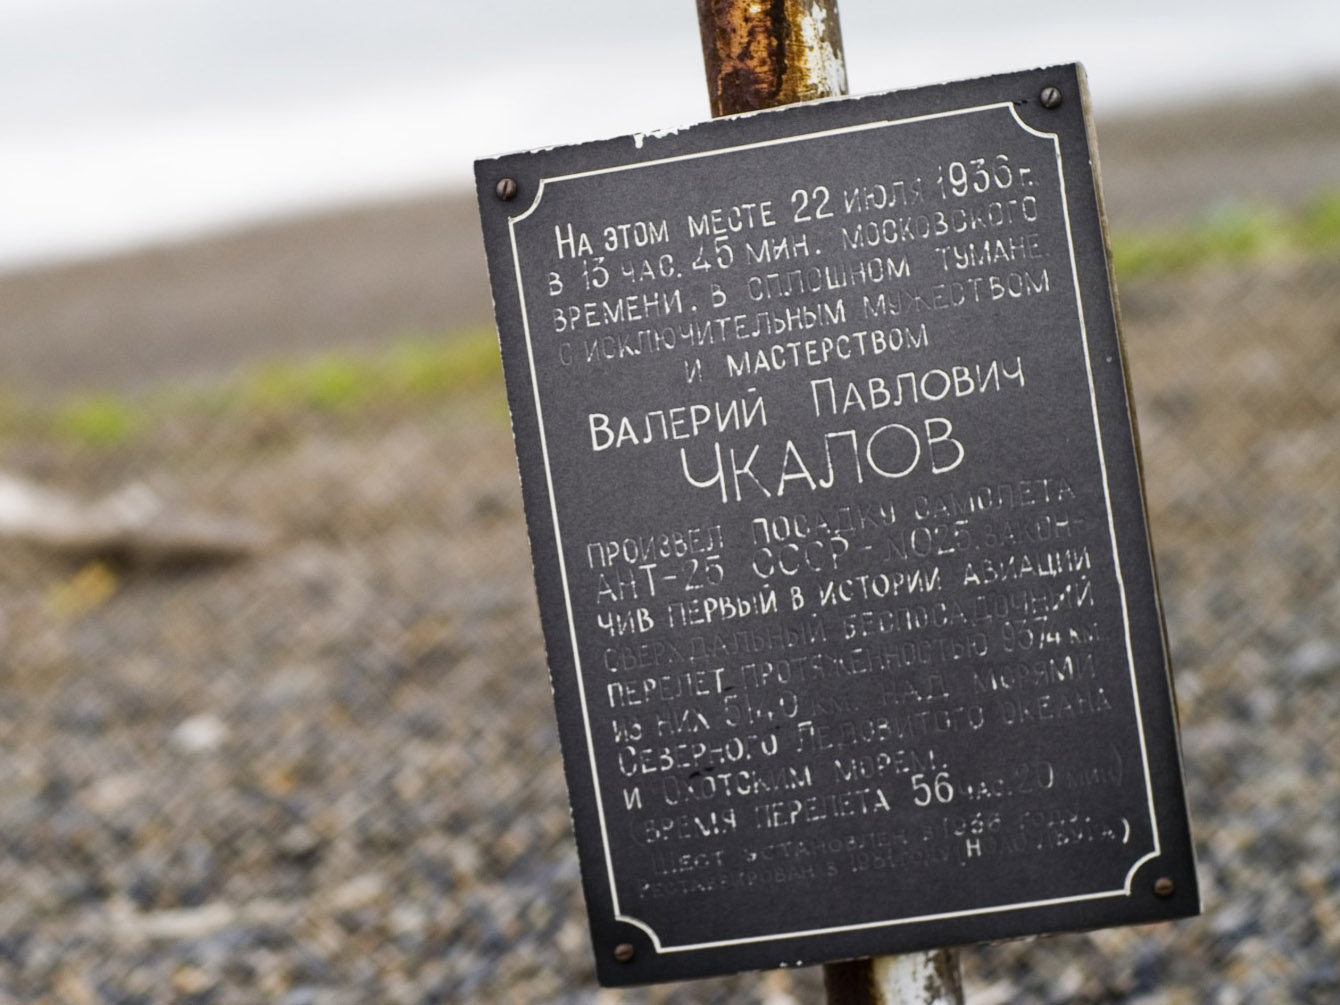 На этом месте 22 июля 1936 г.
в 13 час. 45 мин. московского
времени. в сплошном тумане
с исключительным мужеством
и мастерством
Валерий Павлович
Чкалов
произвел посадку самолета
АНТ-25 СССР-NO25. закон-
чив первый в истории авиации
сверхдальный беспосадочный
перелет протяженностью 9374 км
из них км. над морями
Северного Ледовитого океана
и Охотским морем.
(время перелета 56 час. 20 мин)
Шест установлен в 1936 году.
реставрирован в 1981 году